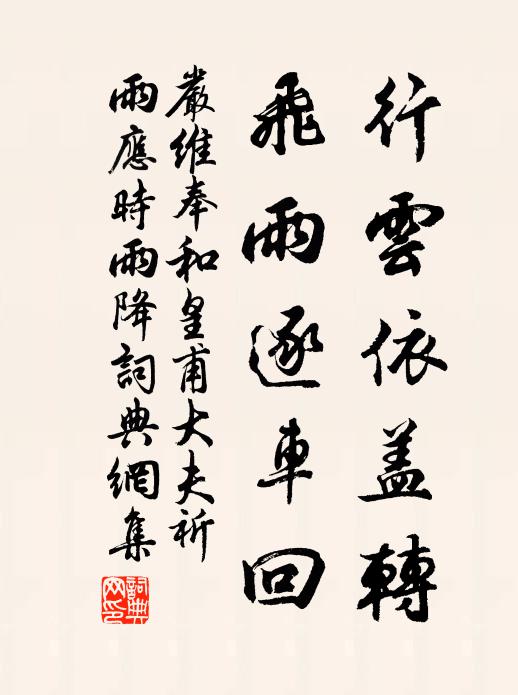 行雲依盖轉
飛雨逐車回
嚴維奉和皇甫大夫祈
雨應時雨降詞典網集
詞典
网印